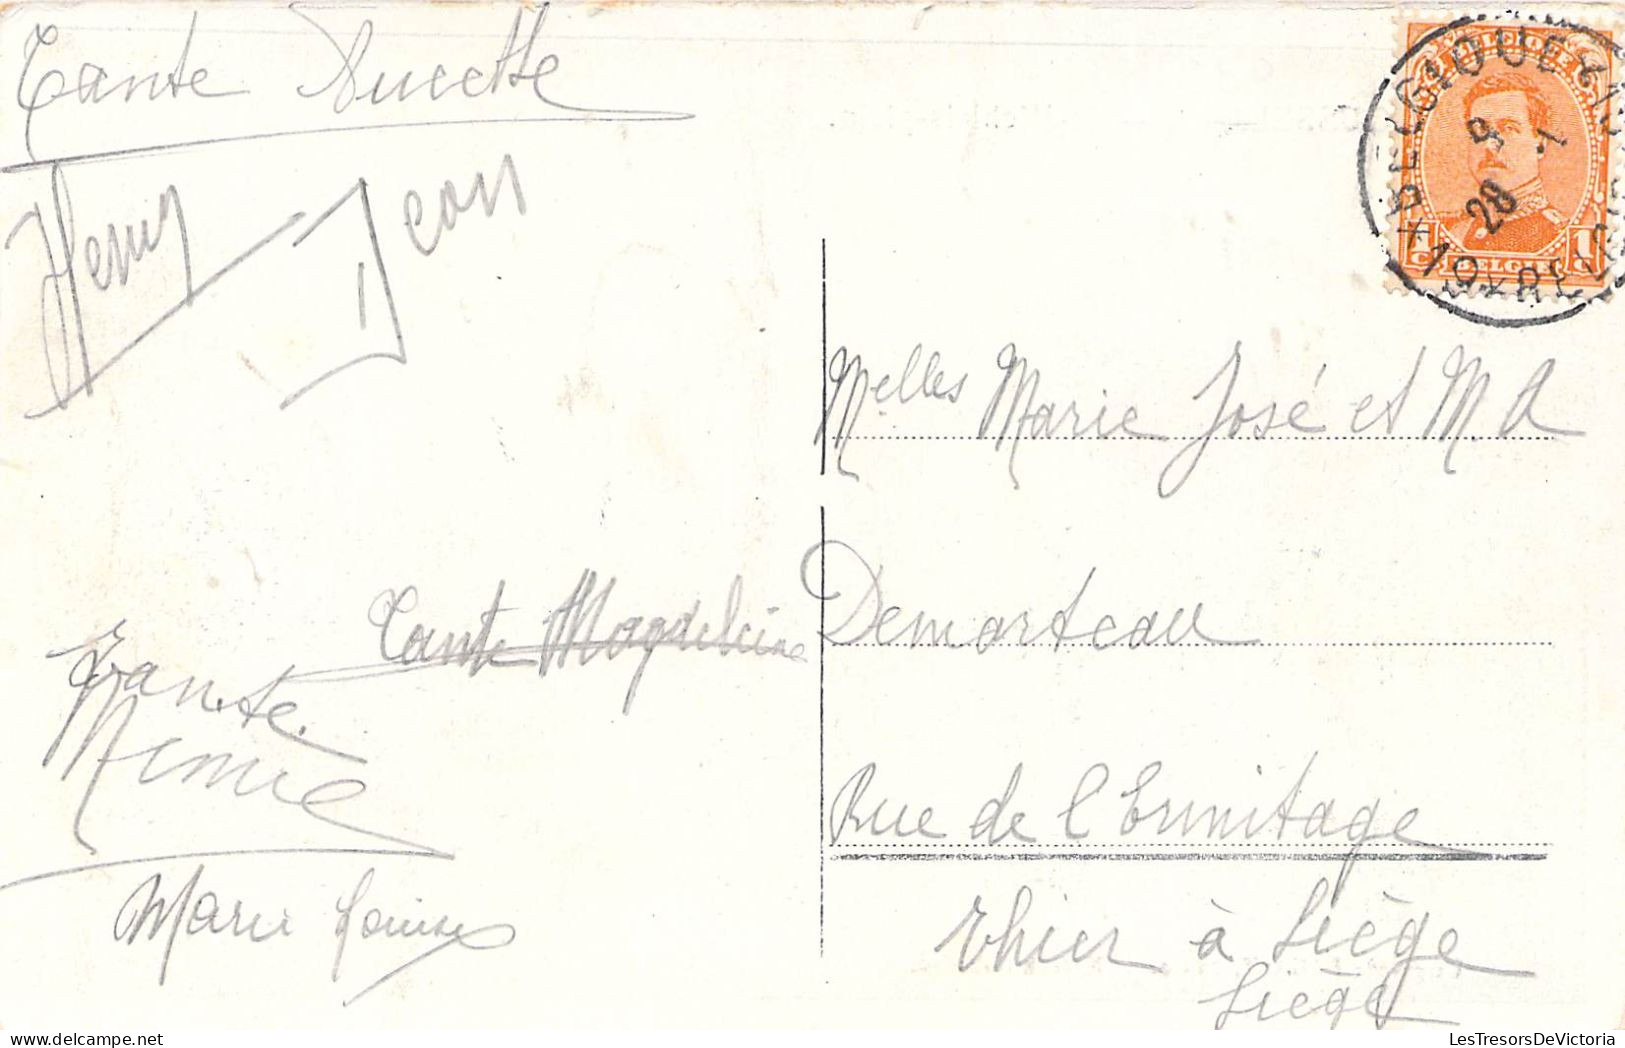 Tante Nucette
Henry Jean
Tante Magdeleine
Tante
Mimie
Marie Louise
BELGIQUE
BELGIQUE
9 1
28
1 1
C BELGIE C
Melles Marie José et M. A
Demarteau
Rue de l'Ermitage
Thier à Liège
Liège
LesTresorsDeVictoria